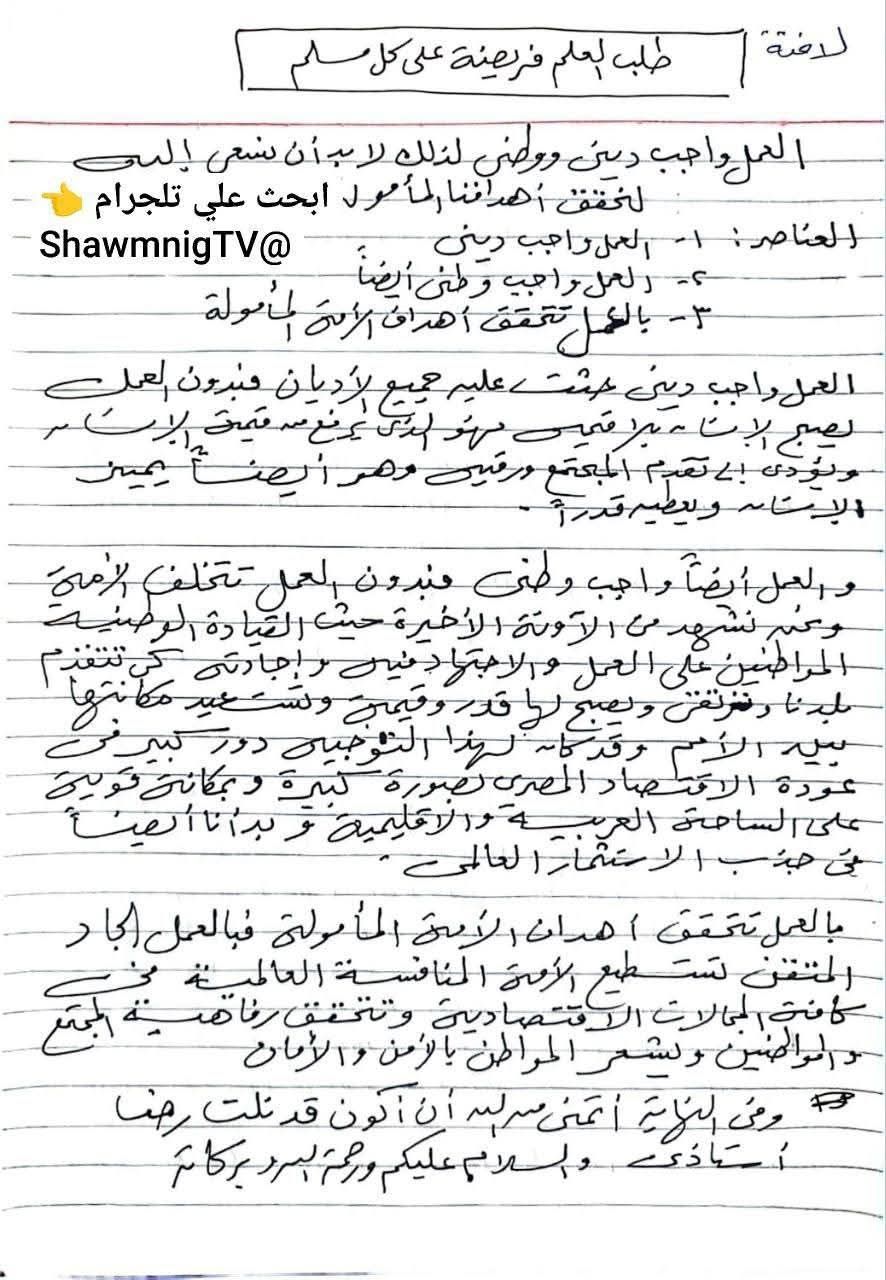 لافتة
طلب العلم فريضة على كل مسلم
العمل واجب دينى ووطنى لذلك لابد أن نسعى إليه
لنحقق أهدافنا المأمولة ابحث علي تلجرام 👈
ShawmnigTV@
العناصر: ١- العمل واجب دينى
٢- العمل واجب وطنى أيضاً
٣- بالعمل تتحقق أهداف الأمة المأمولة
العمل واجب دينى حثت عليه جميع الأديان فبدون العمل
يصبح الإنسان بلا قيمة فهو الذى يرفع من قيمة الإنسان
ويؤدى إلى تقدم المجتمع ورقيه وهو أيضاً يميز
الإنسان ويعطيه قدراً.
والعمل أيضاً واجب وطنى فبدون العمل تتخلف الأمة
ونحن نشهد من الآونة الأخيرة حيث القيادة الوطنية
المواطنين على العمل والاجتهاد فيه وإجادته كى تتقدم
بلدنا وترتقى ويصبح لها قدر وقيمة وتستعيد مكانتها
بين الأمم وقد كان لهذا التوجيه دور كبير فى
عودة الاقتصاد المصرى بصورة كبيرة وبمكانة قوية
على الساحة العربية والاقليمية وبدأنا أيضاً
فى جذب الاستثمار العالمى.
بالعمل تتحقق أهداف الأمة المأمولة فبالعمل الجاد
المتقن تستطيع الأمة المنافسة العالمية فى
كافة المجالات الاقتصادية وتتحقق رفاهية المجتمع
والمواطنين ويشعر المواطن بالأمن والأمان
وفى النهاية أتمنى من الله أن أكون قد نلت رضا
أستاذى والسلام عليكم ورحمة الله وبركاته